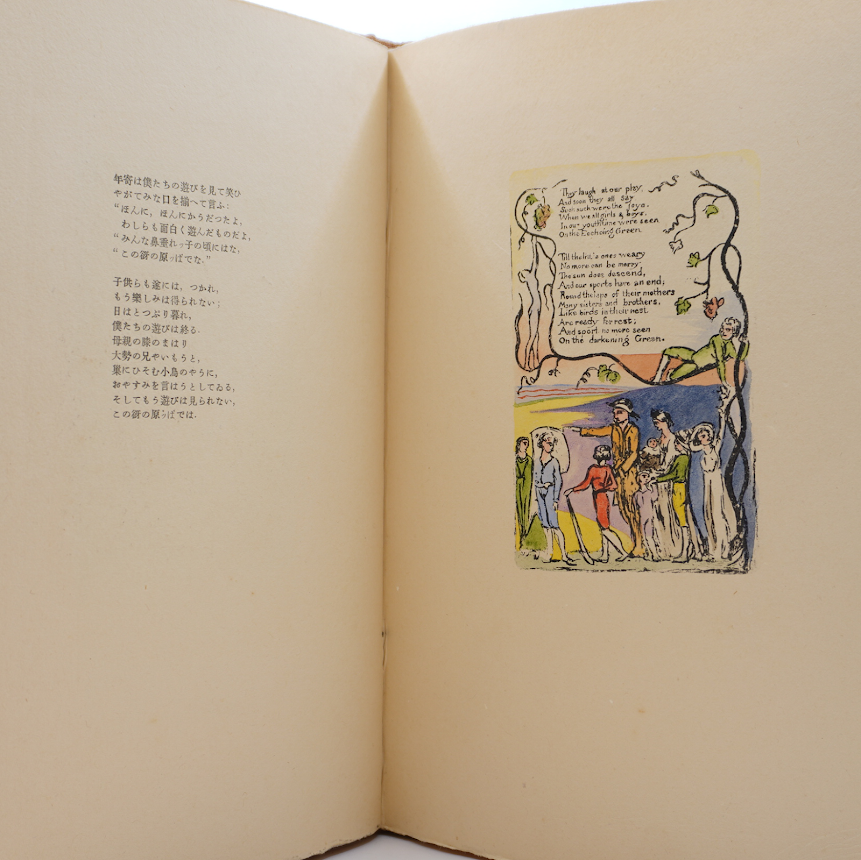 年寄は僕たちの遊びを見て笑ひ
やがてみな口を揃へて言ふ:
“ほんに, ほんにかうだつたよ,
わしらも面白く遊んだものだよ,
“みんな鼻垂れッ子の頃にはな,
“この谺の原ッぱでな.”
子供らも遂には, つかれ,
もう樂しみは得られない;
日はとつぷり暮れ,
僕たちの遊びは終る.
母親の膝のまはり
大勢の兄やいもうと,
巣にひそむ小鳥のやうに,
おやすみを言はうとしてゐる,
そしてもう遊びは見られない,
この谺の原ッぱでは.
They laugh at our play,
And soon they all say
Such such were the joys.
When we all girls & boys,
In our youth time were seen
On the Ecchoing Green.
Till the little ones weary
No more can be merry
The sun does descend,
And our sports have an end;
Round the laps of their mothers
Many sisters and brothers,
Like birds in their nest
Are ready for rest;
And sport no more seen
On the darkening Green.